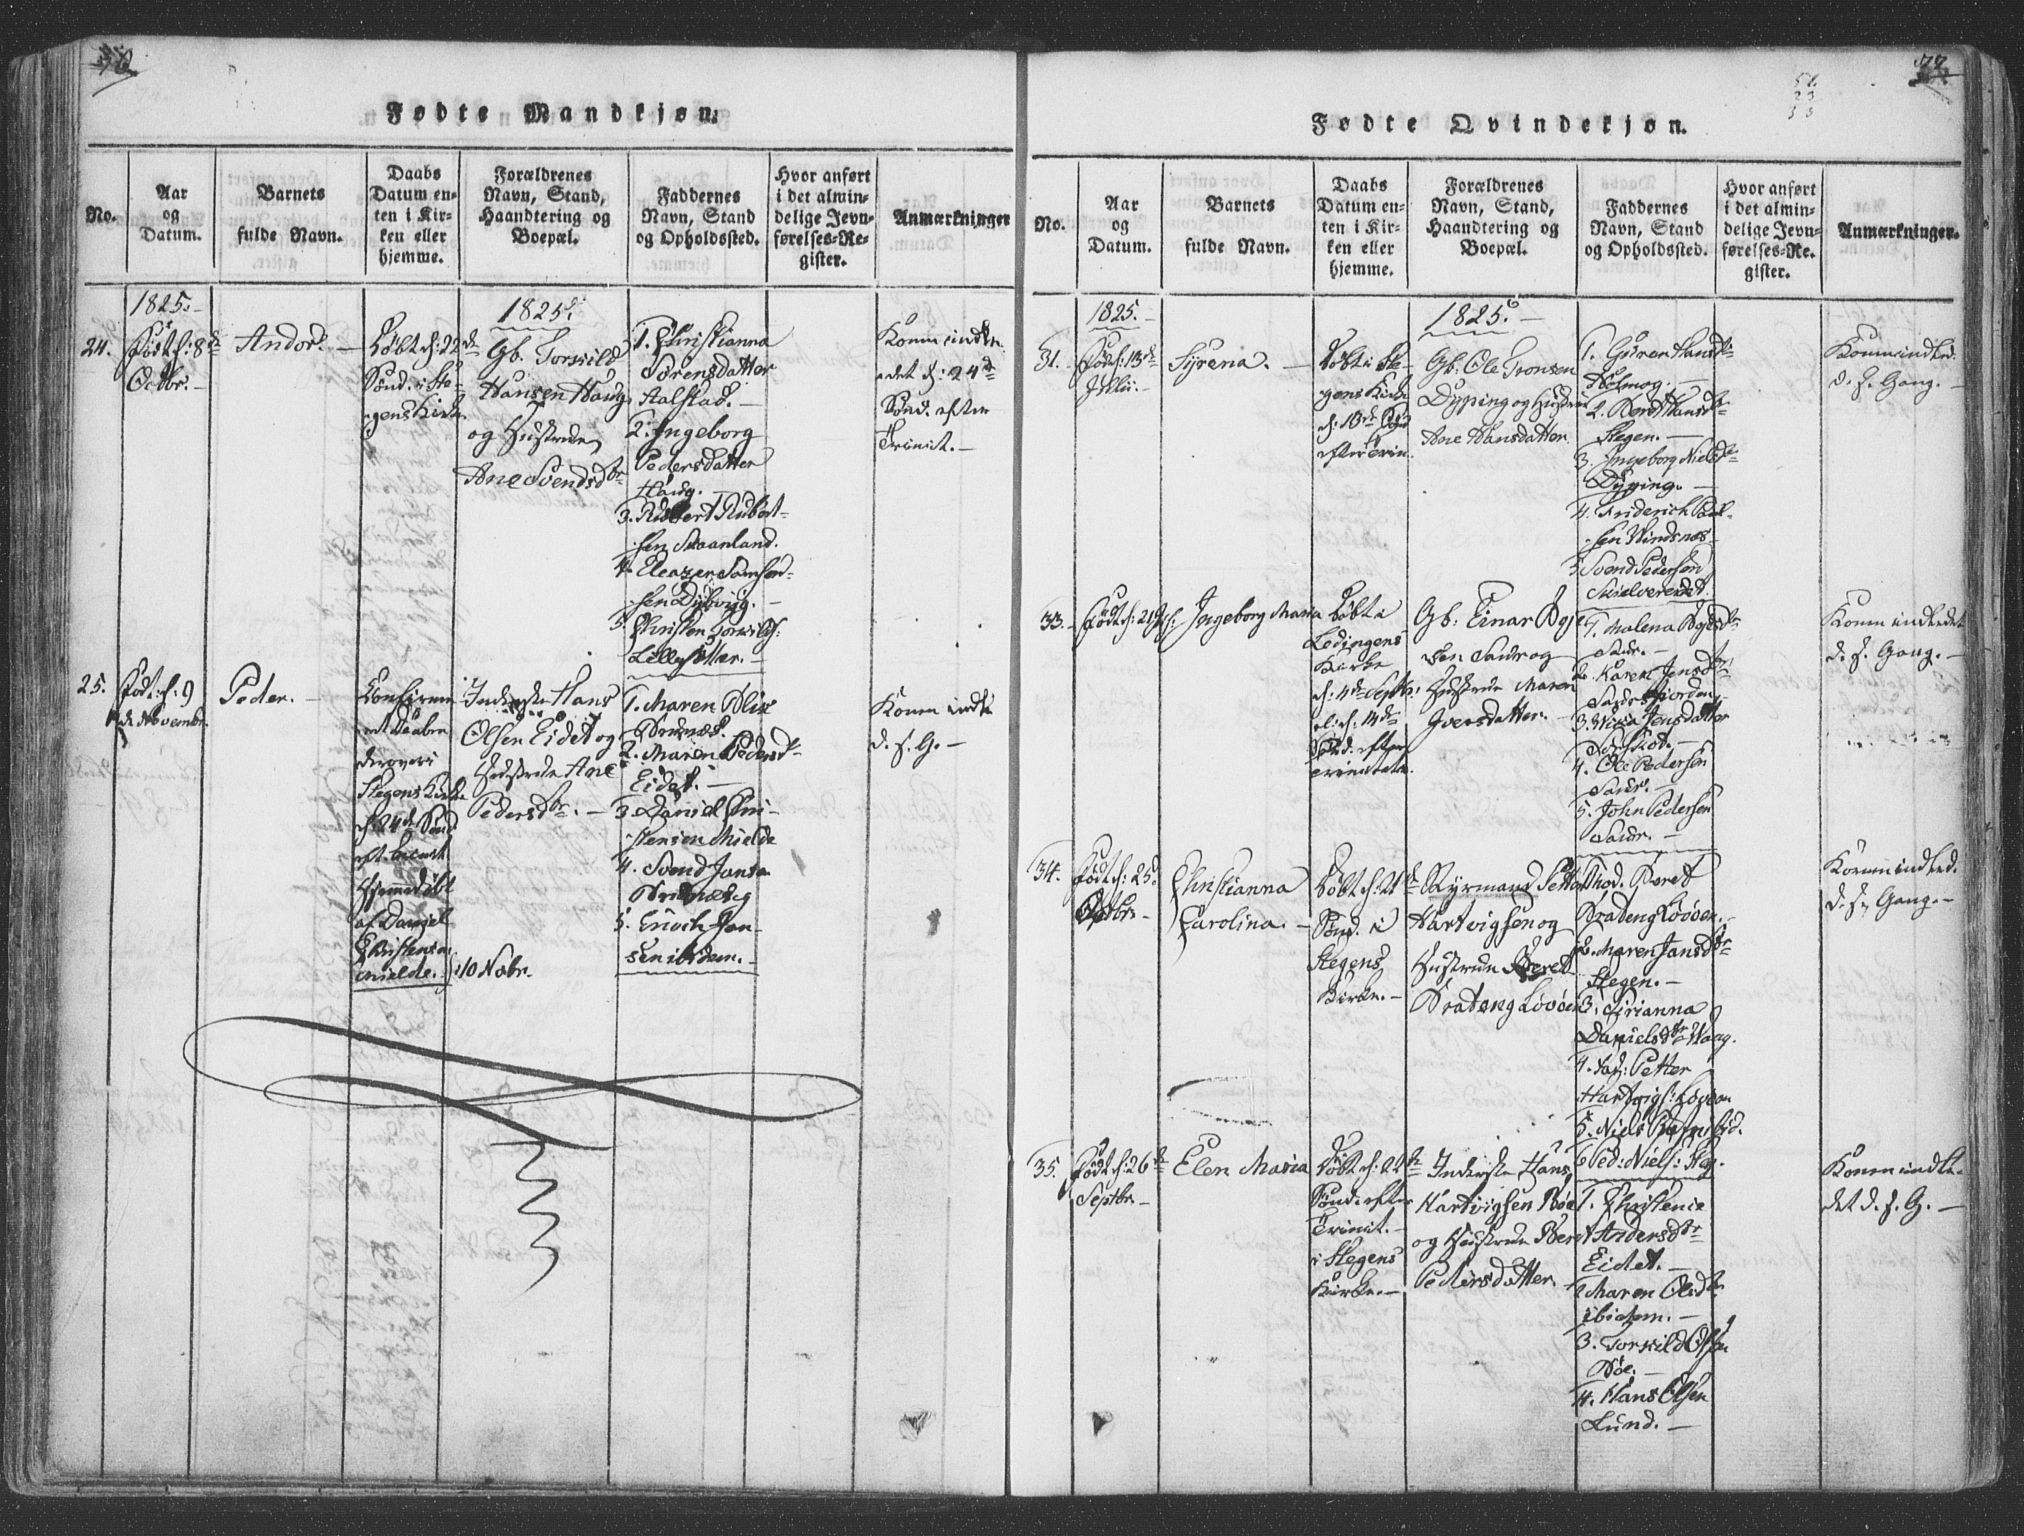 Fødte Mandkjøn.
No.
Aar
og
Datum.
Barnets
fulde Navn.
Daabs
Datum en-
ten i Kir-
ken eller
hjemme.
Forældrenes
Navn, Stand,
Haandtering og
Boepæl.
Faddernes
Navn, Stand
og Opholdssted.
Hvor anført
i det almin-
delige Jevn-
førelses-Re-
gister.
Anmærkninger
1825.
24.
Født d: 8de
Octbr.
Andor. —
Døbt d: 22de
Sønd. i Ste-
gens Kirke
1825.
Gb. Torvild
Hansen Haug
og Hustrue
Ane Svendsdtr
1. Christianna
Sørensdatter
Aalstad. —
2. Ingeborg
Pedersdatter
Haug. —
3. Rubert Rubert-
sen Skaanland.
4. Eleazer Samson-
sen Dybvig. —
5. Christen Torvilds:
Lillesætter. —
det d: 24de
Sønd. efter
Trinit. —
25.
Født d: 9
de Novembr.
Peder. —
Stegens Kirke
d: 24de Sønd
eft. Trinit
Hjemmedøbt
af Daniel
Christensen
Mielde.
10 Nobr.
Inderste Hans
Olsen Eidet og
Hustrue Ane
Pedersdtr. —
1. Maren Blix
Brunæs.
2. Maren Pedersdr
Eidet. —
3. Daniel Chri-
stensen Mielde
4. Svend Jensen
5. Enoch Jen-
sen ibidem. —
d. s. G. —
Fødte Qvindekjøn.
No.
Aar
og
Datum.
Barnets
fulde Navn.
Daabs
Datum en-
ten i Kir-
ken eller
hjemme.
Forældrenes
Navn, Stand,
Haandtering og
Boepæl.
Faddernes
Navn, Stand
og Opholdssted.
Hvor anført
i det almin-
delige Jevn-
førelses-Re-
gister.
Anmærkninger.
1825.
31.
Fød d: 13de
Julii —
Syrena. —
Døbt i Ste-
gens Kirke
d: 13de Sønd
efter Trin.
1825. —
Gb. Ole Tronsen
Dyping og Hustrue
Ane Hansdatter.
1. Guren Hansdr
Holmog. —
2. Beret Hansdr
Stegen. —
3. Ingeborg Nielsdr
Dyping. —
4. Friderich Paul-
sen Vindsnæs
5 Svend Pedersen
Skielverendet.
d. s. Gang. —
33.
Født d: 21
Ingeborg Maria
Døbt i
Lødingens
Kirke
d: 4de Septbr.
Sønd. efter
trinitatis.
Gb. Einar Bye
sen Saur og
Hustrue Maren
Iversdatter. —
1. Malena
Saur. —
2. Karen Jensdtr
Jensdatter
4. Ole Pedersen
Saur. —
5. John Pedersen
Saur. —
Komm indledet
d. s. Gang. —
34.
Født d: 25
Septbr —
Christianna
Carolina. —
Døbt d: 21de
Sønd. i
Stegens
Kirke. —
Ryrmand Petter
Hartvigsen og
Hustrue Beret
Brateng Løvøen
1. Mod. Beret
Brateng Løvøen. —
2. Maren Jansdtr
Stegen. —
3. Sirianna
Danielsdtr Haag.
4. Petter
Hartvigs: Løvøen
5. Niels
6 Ped: Niels: Steg.
Komm indled.
d. s. Gang. —
35.
Født d: 26de
Septbr. —
Elen Maria
Døbt d: 22de
Sønd. efter
Trinit. —
i Stegens
Kirke. —
Inderste Hans
Hartvigsen Bøe
og Hustrue Beret
Pedersdatter.
1. Christence
Andersdtr
Eidet. —
2 Maren Olsdtr
ibidem. —
3. Torvild Olsen
Bøe. —
4. Hans Olsen
Lund. —
Komm indle-
det d. s. G. —